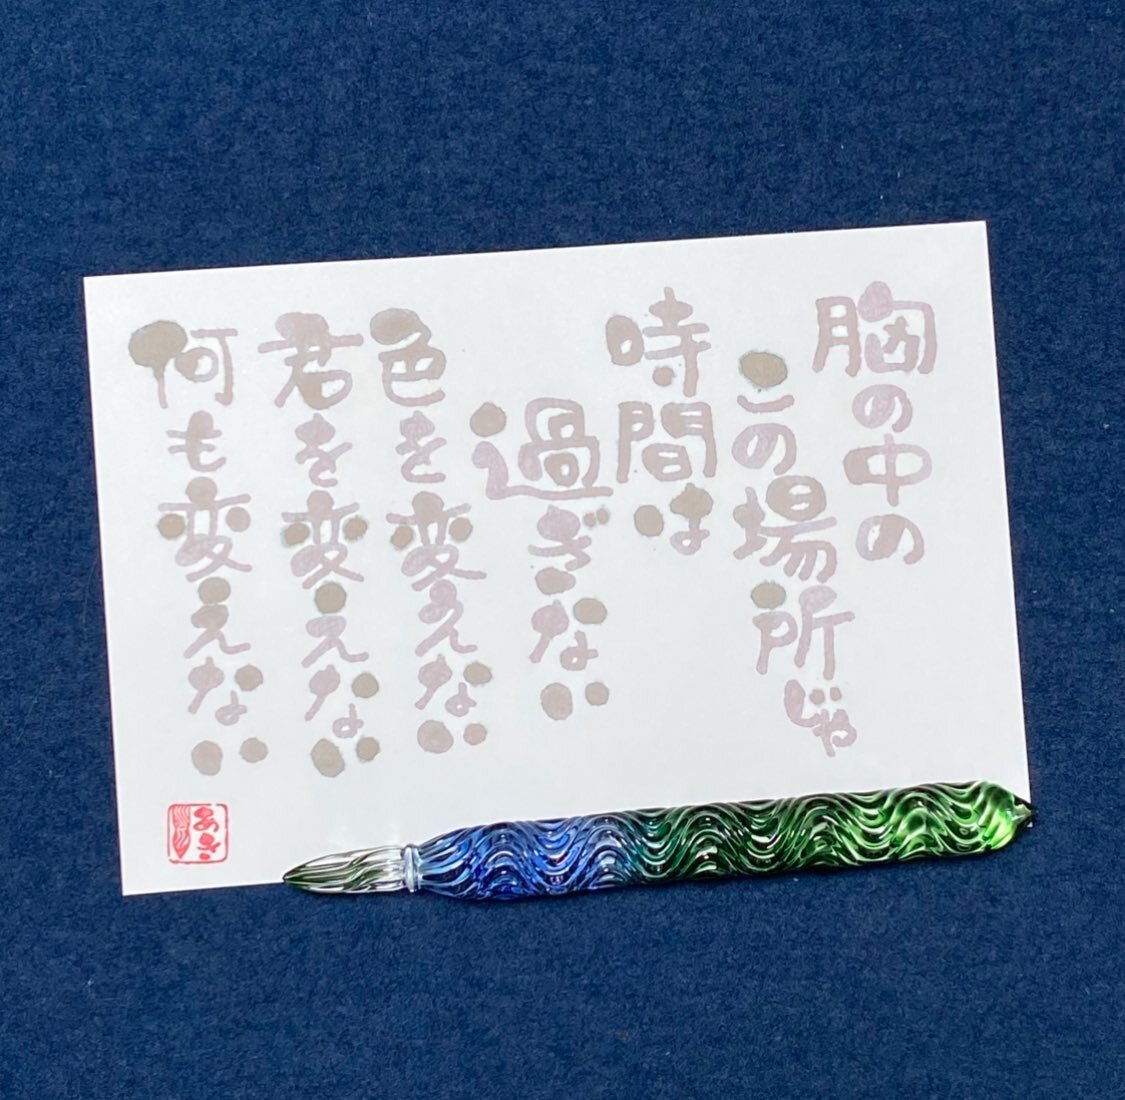 胸の中の
この場所じゃ
時間は
過ぎない
色を変えない
君を変えない
何も変えない